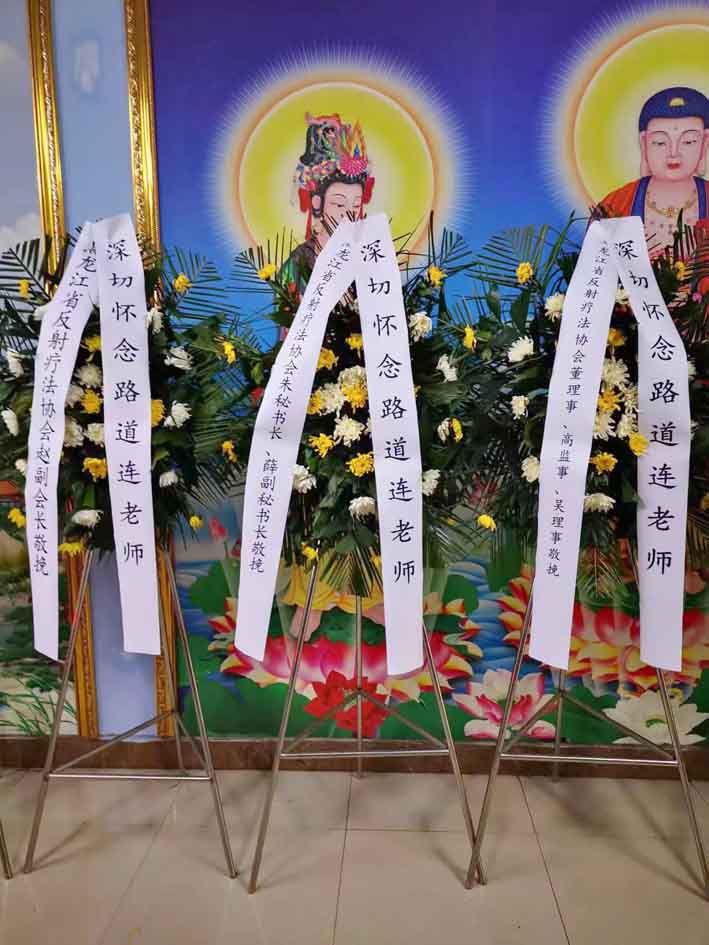 深切怀念路道连老师
龙江省反射疗法协会赵副会长敬挽
深切怀念路道连老师
龙江省反射疗法协会朱秘书长、薛副秘书长敬挽
深切怀念路道连老师
龙江省反射疗法协会董理事、高监事、吴理事敬挽